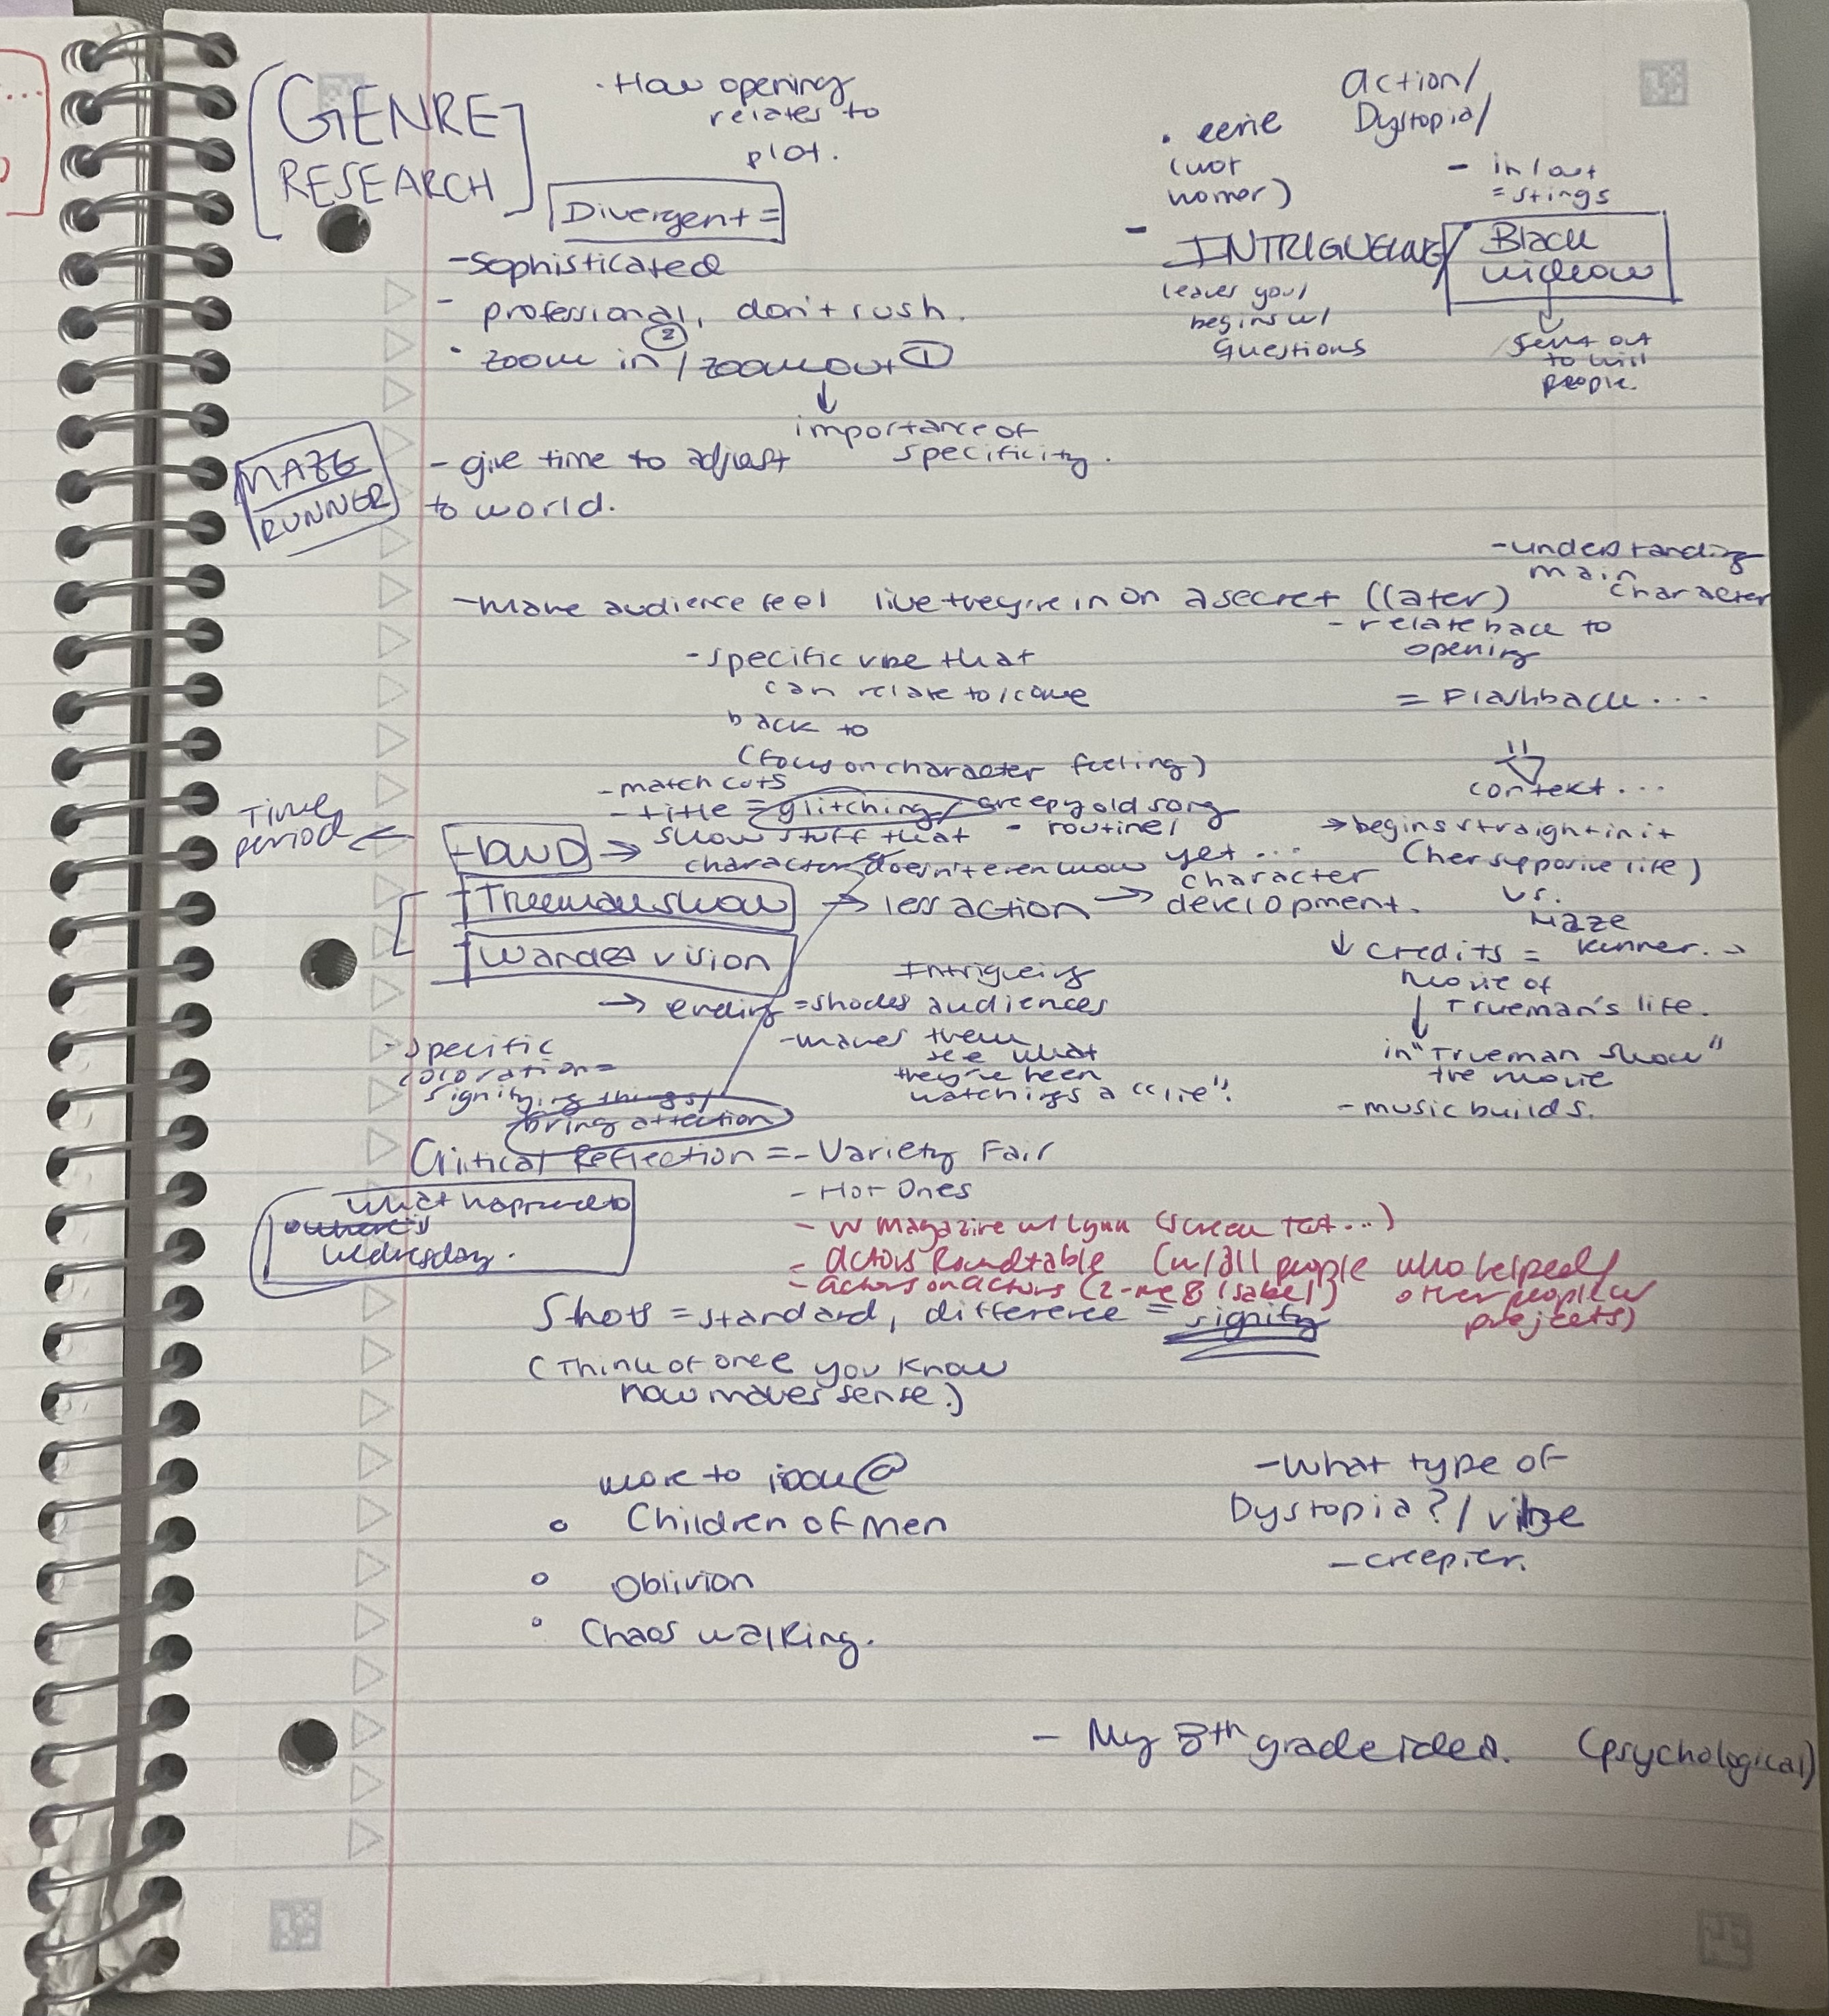 GENRE
RESEARCH
· How opening
relates to
plot.
action/
Dystopia/
· eerie
(not
horror)
- in last
= stings
Divergent =
- Sophisticated
- professional, don't rush.
· zoom in ② / zoom out ①
↓
importance of
specificity.
- INTRIGUEING/
leaves you/
begins w/
Questions
Black
widow
↓
sent out
to kill
people.
MAZE
RUNNER
- give time to adjust
to world.
- understanding
main
character
- make audience feel like they're in on a secret (later)
- relate back to
opening
= Flashback...
- specific vibe that
can relate to/come
back to
(focus on character feeling)
context...
- match cuts
- title = glitching/creepy old song
- routine/
Time
period ←
→ show stuff that
character doesn't even know yet...
→ begins straight in it
(her supporive life)
vs.
Maze
Runner. →
Trueman show → less action → character
development.
Wanda vision
↓ credits =
movie of
Trueman's life.
↓
in "Trueman Show"
the movie
- music builds.
Intrigueing
→ ending = shocks audiences
- makes them
see what
they've been
watching is a "lie".
- specific
coloration =
signifying things/
bring attection
Critical Reflection = - Variety Fair
- Hot Ones
- W magazine w/ Lynn (screen test...)
- actors Roundtable (w/ all people who helped/
other people w
projects)
- actors on actors (2 - me & Isabel)
what happened to
where's
wednesday.
Shots = standard, difference = signify
(Think of once you know
now makes sense.)
more to look @
○ Children of Men
○ Oblivion
○ Chaos walking.
- What type of
Dystopia? / vibe
- creepier.
- My 8th grade idea. (psychological)